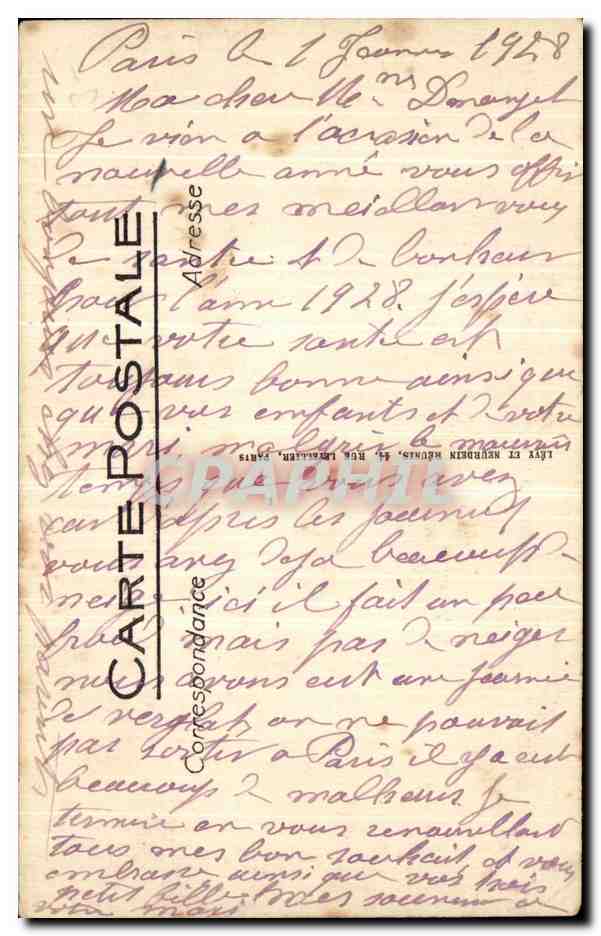 Paris le 1 Janvier 1928
Ma cher Me
Je vien a l'occasion de la
nouvelle anné vous offir
tout mes meilleur veux
de santé et de bonheur
pour l'anne 1928. j'espère
que votre santé est
toujours bonne ainsi que
que vos enfants et de votre
mari, malgré le mauvais
temps que vous avez
car depris les journeaux
vous avez deja beaucoup de
neige ici il fait un peu
froid mais pas de neiger
nous avons eut une journie
de verglat on ne pouvait
pas sortir a Paris il y a eut
beaucoup de malheur Je
termine en vous renouvellant
tous mes bon souhait et vous
embrasse ainsi que vos trois
petit fille mes souvenir a
votre mari
CARTE POSTALE
Correspondance
Adresse
LÉVY ET NEURDEIN RÉUNIS, 44, RUE LETELLIER, PARIS
CPAPHIL